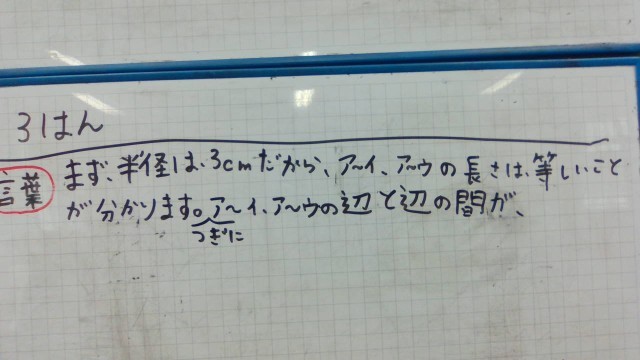 3はん
言葉
まず、半径は、3cmだから、ア〜イ、ア〜ウの長さは、等しいこと
が分かります。ア〜イ、ア〜ウの辺と辺の間が、
つぎに